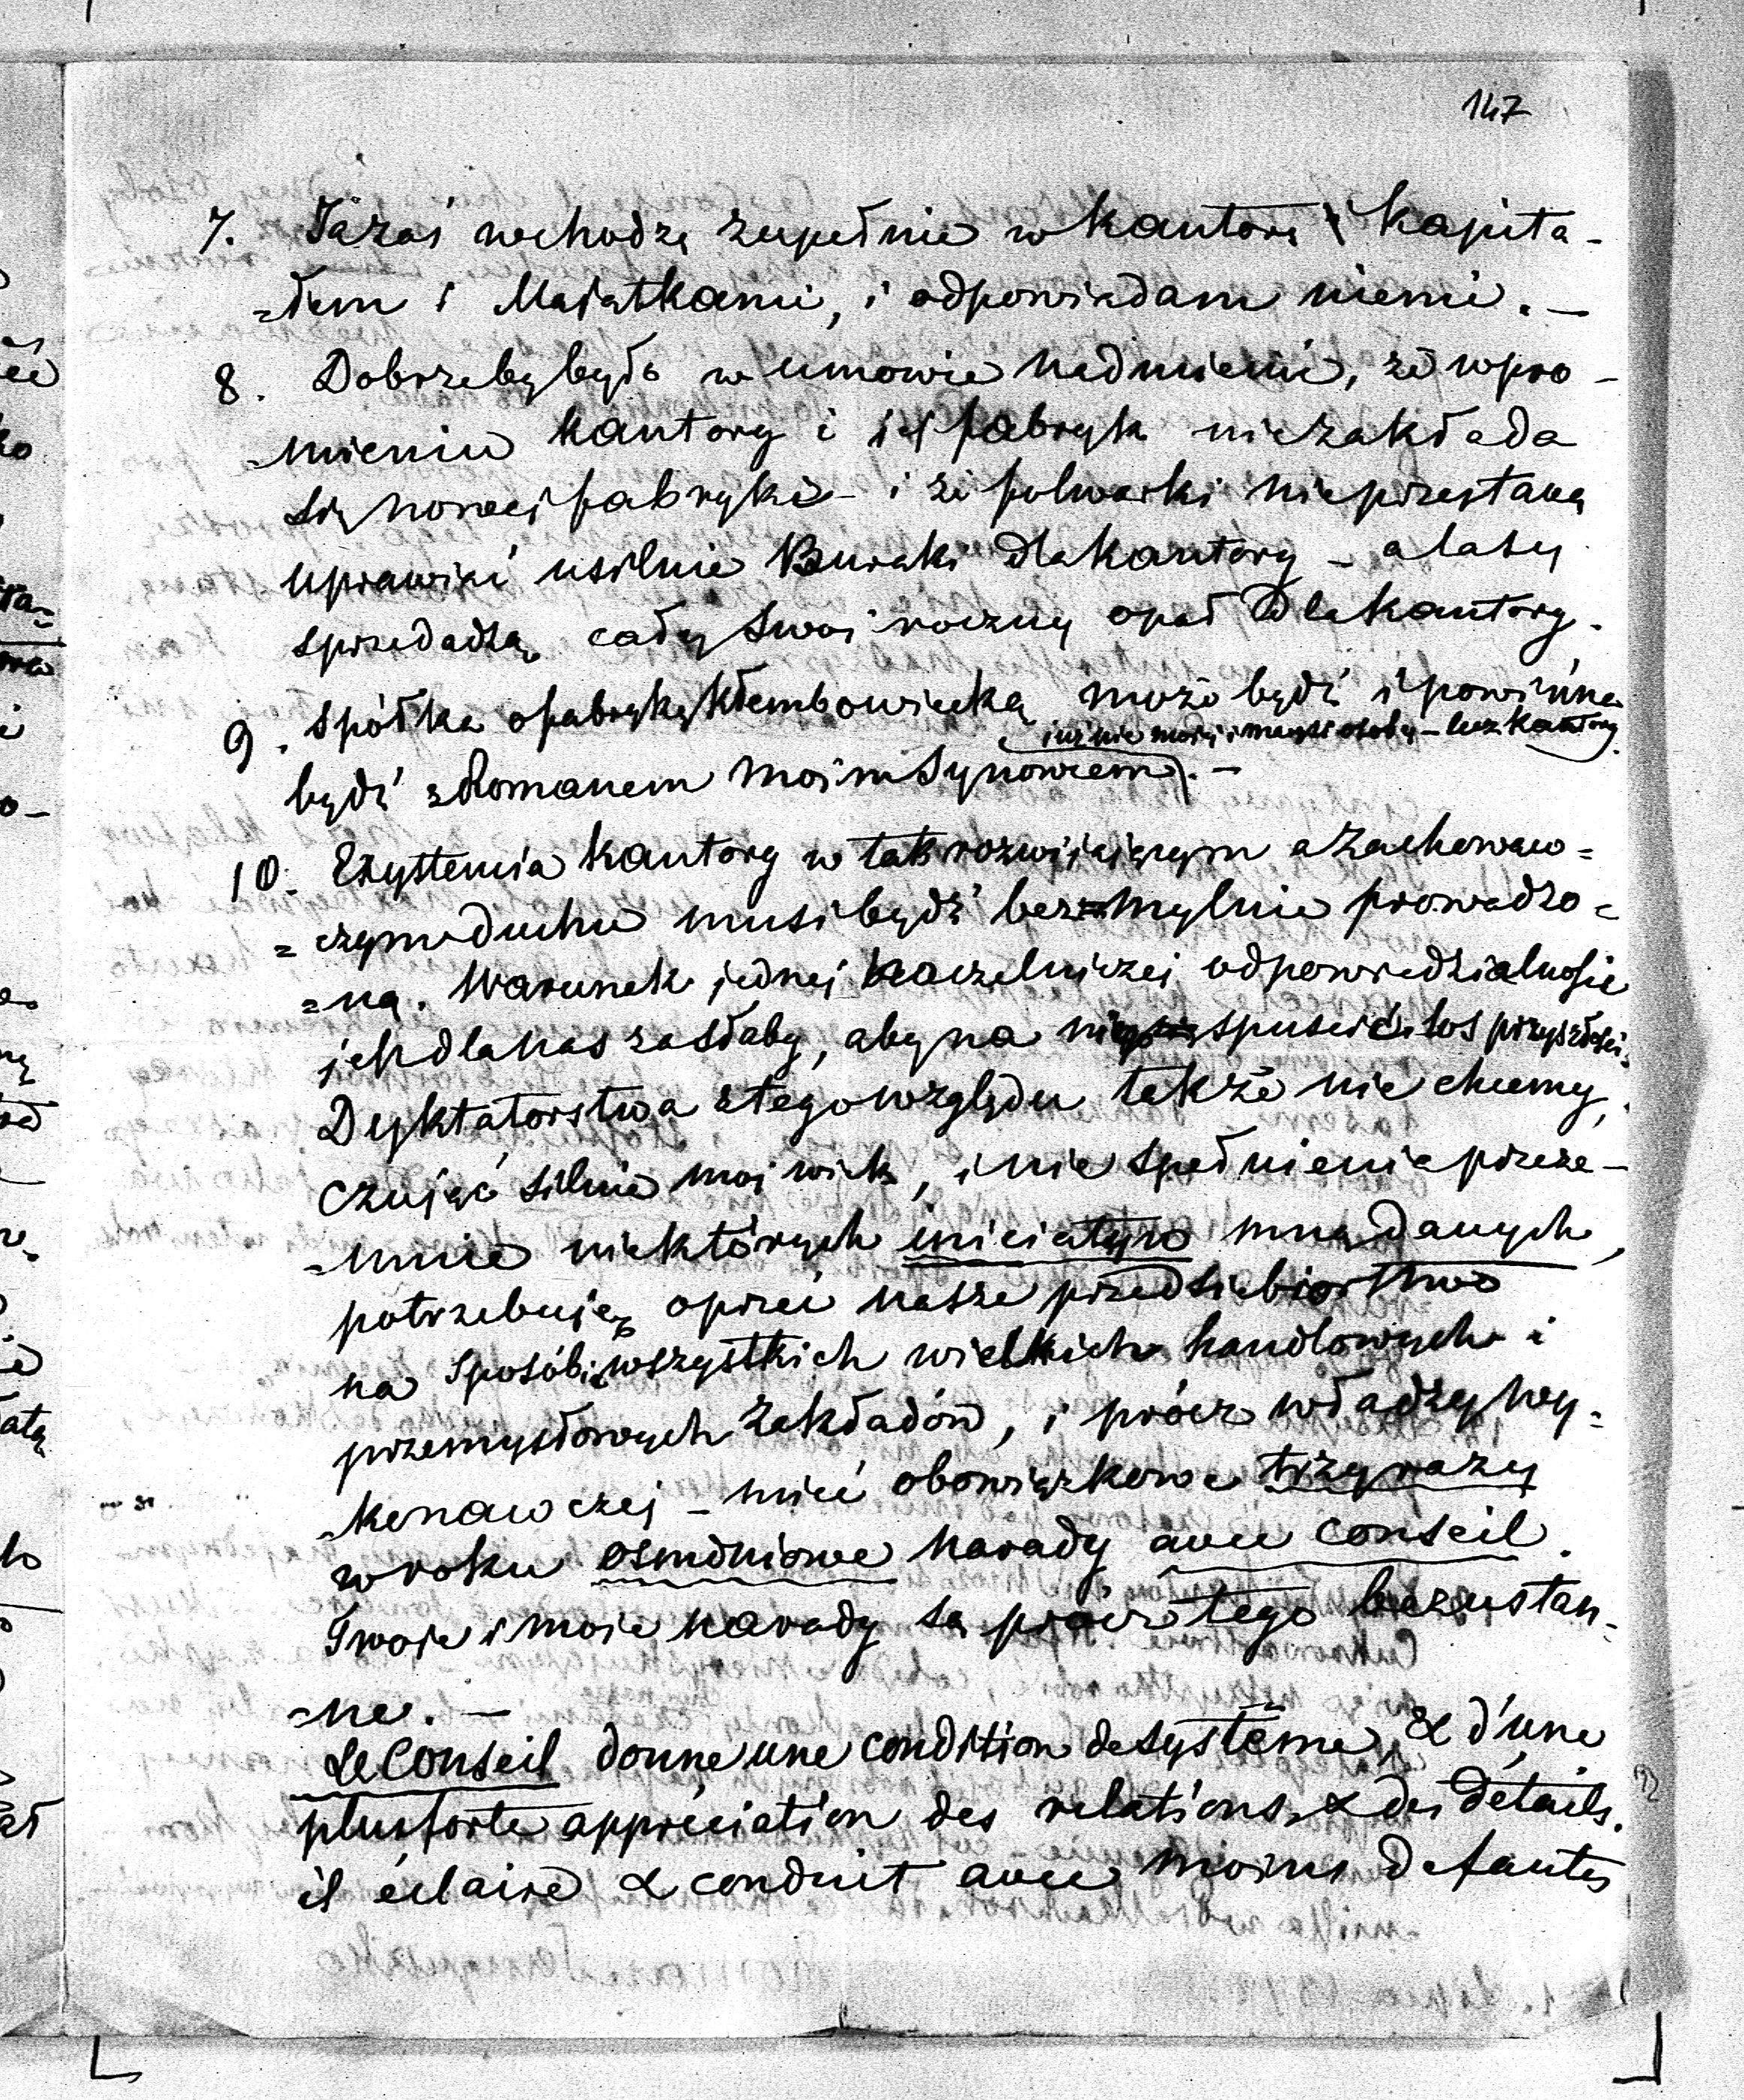 147
7. Jazaś wchodzę zupełnie w kantorę kapita-
=łem i Majątkami, i odpowiadam niemi. —
8. Dobrzeby było w umowie nadmienić, że wpro-
=mieniu kantory i jej fabryk niezakłada
się nowej fabryki - i że folwarki nieprzestaną
uprawiać usilnie Buraki dla kantory - a lasy
sprzedadzą cały swoi roczny opał dla kantory.
9. Spółka o fabrykę Kłembowiecką może bydź i powinna
iuż nie moią i męża osobą - lecz kantory
bydź z Romanem moim Synowcem. -
10. Exystencia kantory w tak rozwijającym a zachowaw=
=czym duchu musi bydź bezmylnie prowadzo=
=ną. Warunek jednej naczelniczej odpowiedzialności
jest dla nas za słaby, aby na spuścić los przyszłości.
Dyktatorstwa z tego względu także nie chcemy,
czując silnie moj wiek, i nie spełnienia przeze-
=mnie niektórych iniciatyw mną danych,
potrzebuję oprzeć nasze przedsiebiorstwo
na sposób wszystkich wielkich handlowych i
przemysłowych zakładów, i prócz władzy wy-
=konawczej - mieć obowiązkowe trzy razy
w roku osmdniowe narady avec conseil.
Twoje i moie narady są prócz tego bezustan-
=ne. —
Le Conseil donne une condition de système, & d'une
plus forte appréciation des relations & des détails.
il éclaire & conduit avec moins de fautes